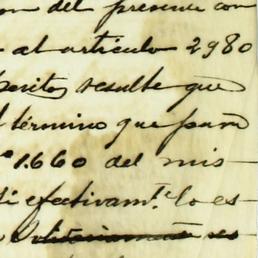 on del presente con
al articulo 2980
peritos resulte que
l término que para
1.660 del mis-
di efectivamᵗᵉ lo es-